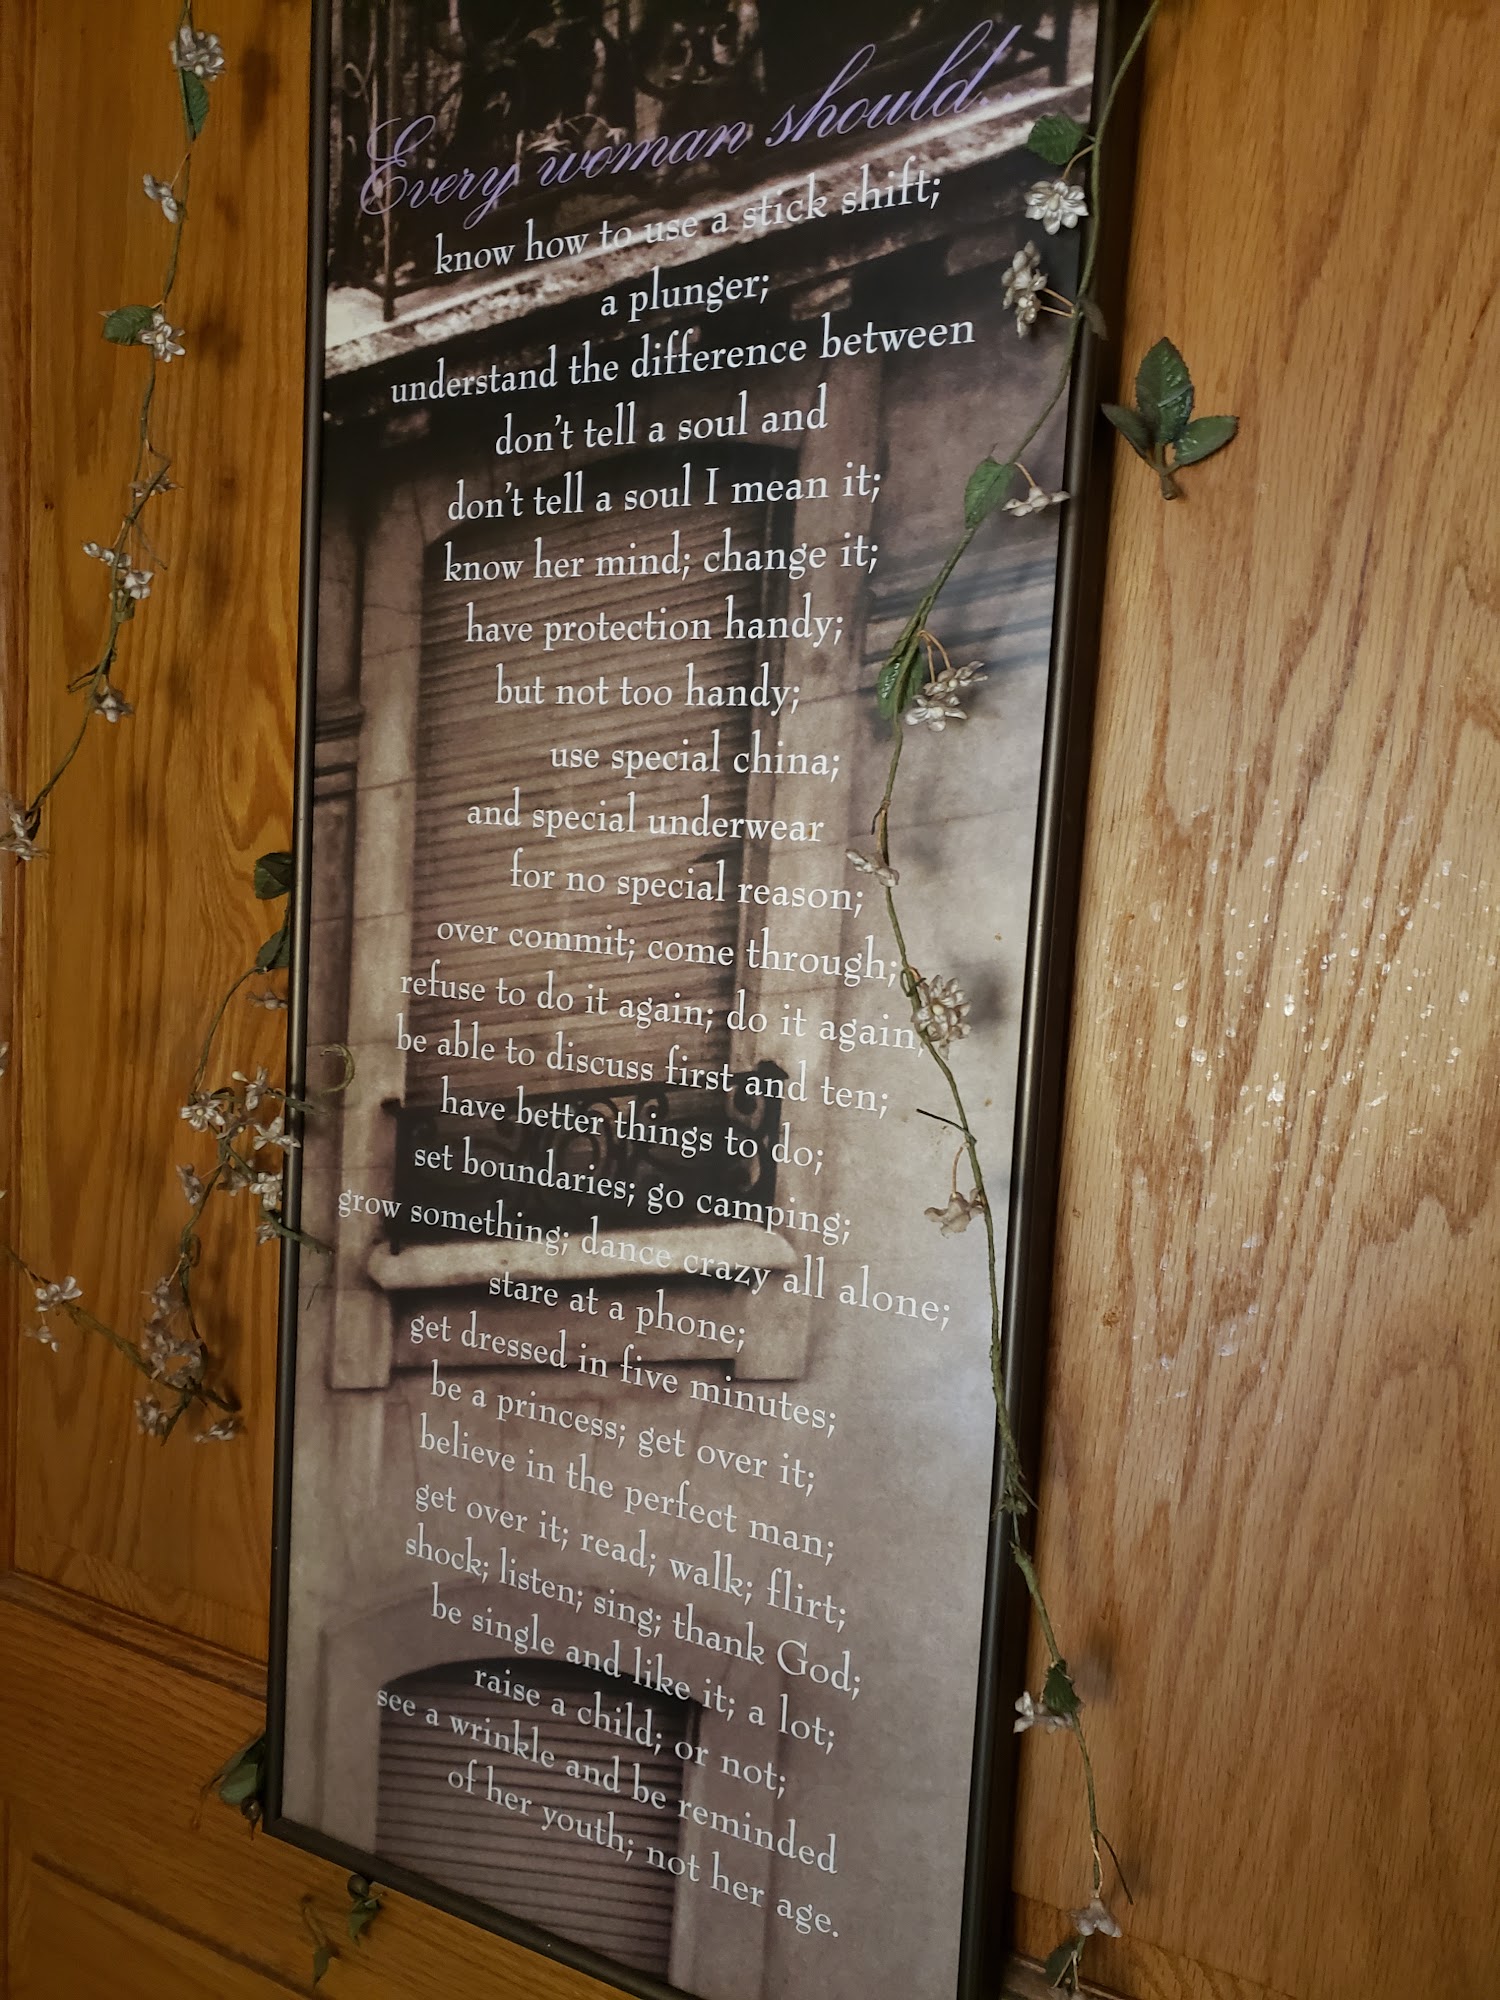 Every woman should...
know how to use a stick shift;
a plunger;
understand the difference between
don't tell a soul and
don't tell a soul I mean it;
know her mind; change it;
have protection handy;
but not too handy;
use special china;
and special underwear
for no special reason;
over commit; come through;
refuse to do it again; do it again;
be able to discuss first and ten;
have better things to do;
set boundaries; go camping;
grow something; dance crazy all alone;
stare at a phone;
get dressed in five minutes;
be a princess; get over it;
believe in the perfect man;
get over it; read; walk; flirt;
shock; listen; sing; thank God;
be single and like it; a lot;
raise a child; or not;
see a wrinkle and be reminded
of her youth; not her age.